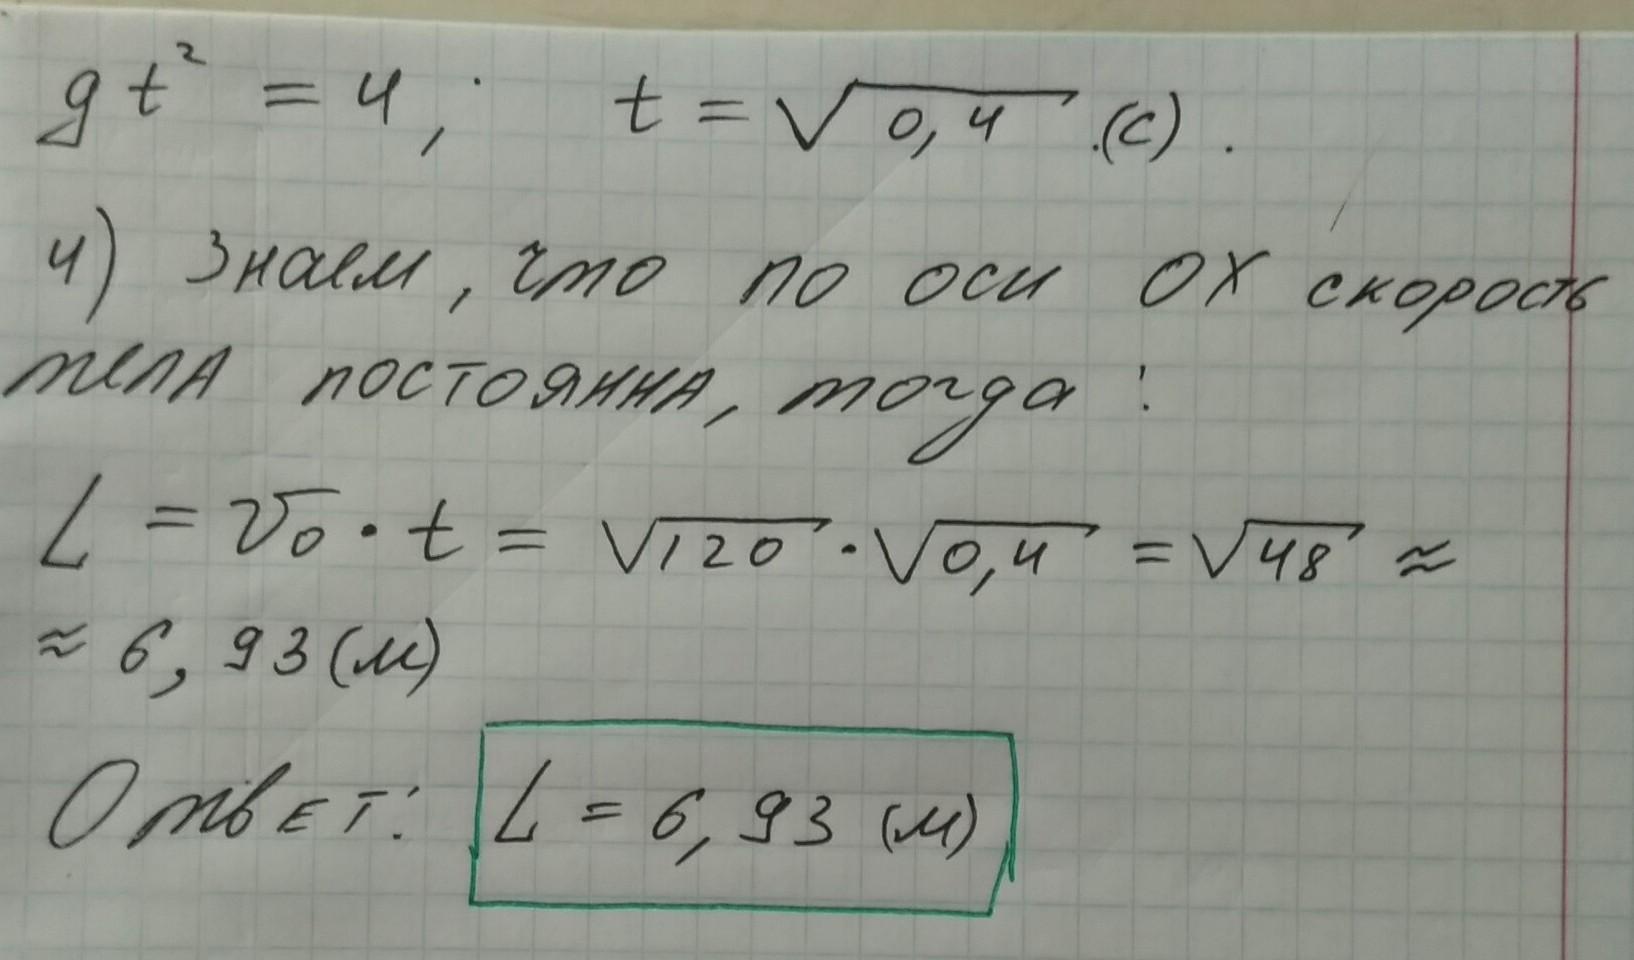 gt² = 4; t = √0,4 (с).
4) Знаем, что по оси OX скорость
тела постоянна, тогда:
L = v₀ · t = √120 · √0,4 = √48 ≈
≈ 6,93 (м)
Ответ: L = 6,93 (м)